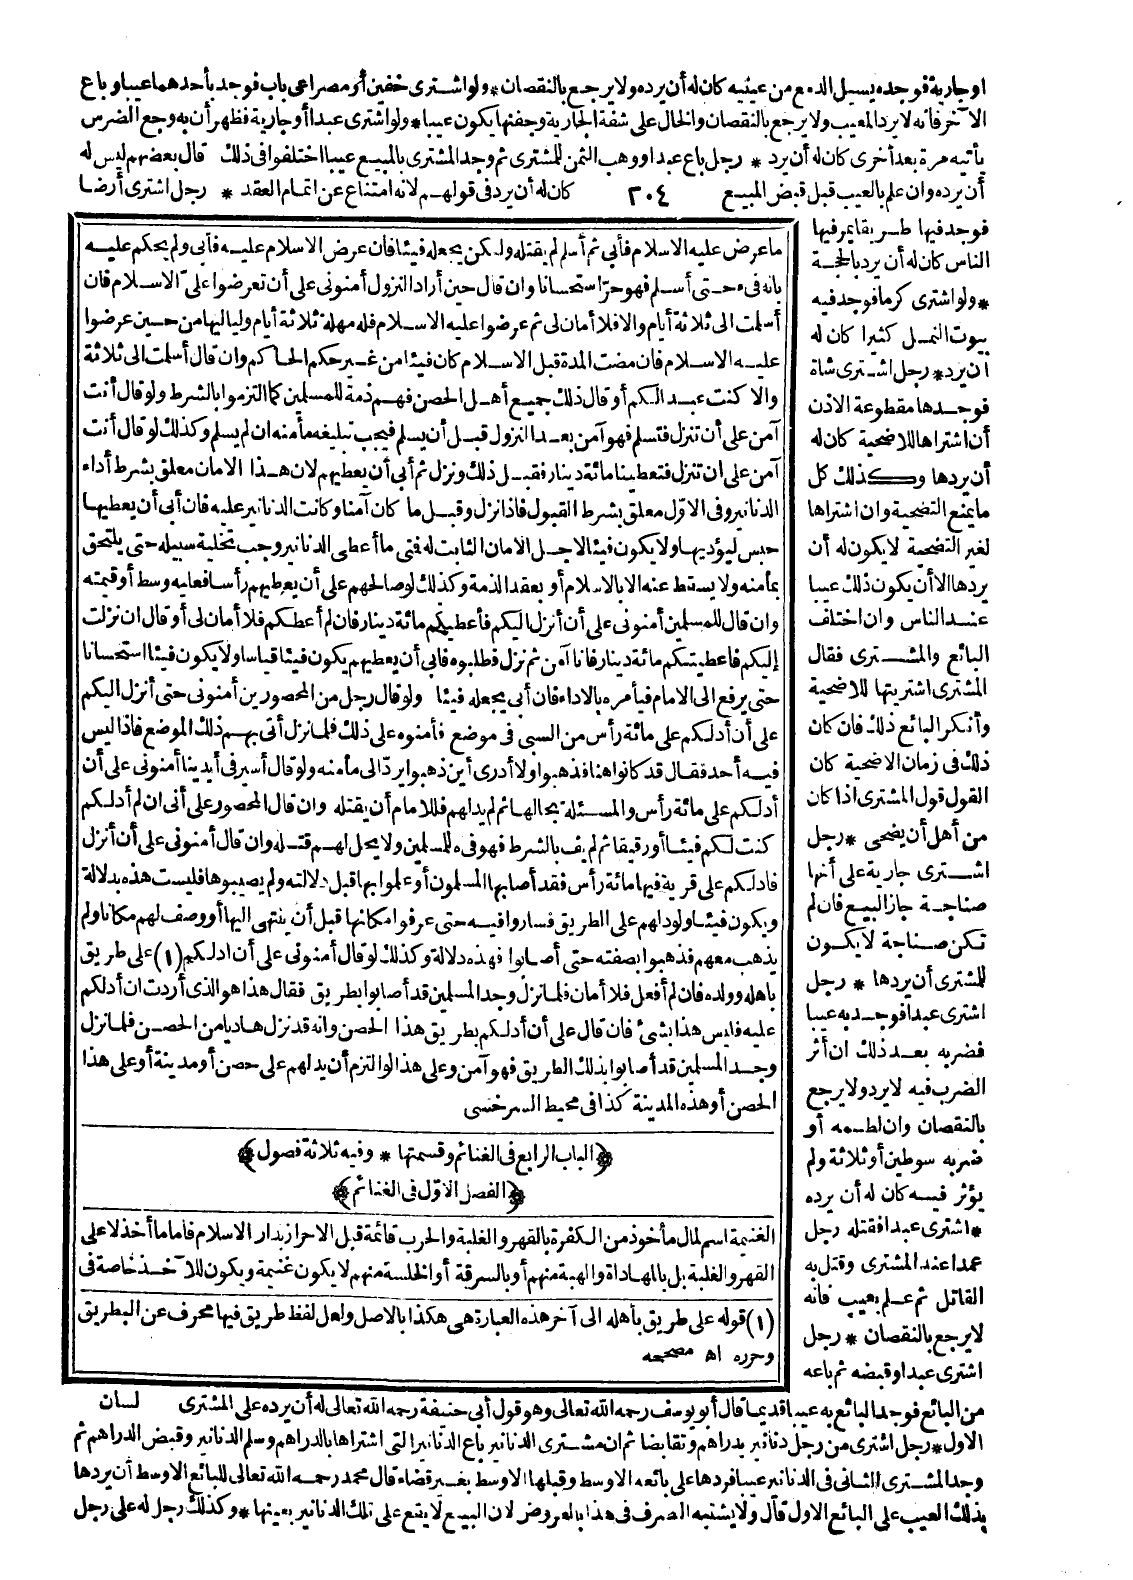 اوجارية فوجده يسيل الدمع من عينيه كان له أن يرده ولا يرجع بالنقصان * ولو اشترى خفين أو مصراعى باب فوجد بأحدهما عيبا وباع
الآخر فانه لا يرد المعيب ولا يرجع بالنقصان والخال على شفة الجارية وجفنها يكون عيبا * ولو اشترى عبدا أو جارية فظهر أن به وجع الضرس
يأتيه مرة بعد أخرى كان له أن يرد * رجل باع عبدا ووهب الثمن للمشترى ثم وجد المشترى بالمبيع عيبا اختلفوا فى ذلك قال بعضهم ليس له
أن يرده وان علم بالعيب قبل قبض المبيع ٢٠٤ كان له أن يرد فى قولهم لانه امتناع عن اتمام العقد * رجل اشترى أرضا
فوجد فيها طريقا يمر فيها
الناس كان له أن يرد بالحجة
* ولو اشترى كرما فوجد فيه
بيوت النمل كثيرا كان له
ان يرد * رجل اشترى شاة
فوجدها مقطوعة الاذن
أن اشتراها للاضحية كان له
أن يردها وكذلك كل
ما يمنع التضحية وان اشتراها
لغير التضحية لا يكون له أن
يردها الا أن يكون ذلك عيبا
عند الناس وان اختلف
البائع والمشترى فقال
المشترى اشتريتها للاضحية
وأنكر البائع ذلك فان كان
ذلك فى زمان الاضحية كان
القول قول المشترى اذا كان
من أهل أن يضحى * رجل
اشترى جارية على أنها
صناجة جاز البيع فان لم
تكن صناجة لا يكون
للمشترى أن يردها * رجل
اشترى عبدا فوجد به عيبا
فضربه بعد ذلك ان أثر
الضرب فيه لا يرد ولا يرجع
بالنقصان وان لطمه أو
ضربه سوطين أو ثلاثة ولم
يؤثر فيه كان له أن يرده
* اشترى عبدا فقتله رجل
عمدا عند المشترى وقتل به
القاتل ثم علم بعيب فانه
لا يرجع بالنقصان * رجل
اشترى عبدا وقبضه ثم باعه
ما عرض عليه الاسلام فأبى ثم أسلم لم يقتله ولكن يجعله فيئا فان عرض الاسلام عليه فأبى ولم يحكم عليه
بانه فىء حتى أسلم فهو حرّ استحسانا وان قال حين أراد النزول أمنونى على أن تعرضوا علىّ الاسلام فان
أسلمت الى ثلاثة أيام والا فلا أمان لى ثم عرضوا عليه الاسلام فله مهلة ثلاثة أيام ولياليها من حين عرضوا
عليه الاسلام فان مضت المدة قبل الاسلام كان فيئا من غير حكم الحاكم وان قال أسلمت الى ثلاثة
والا كنت عبدا لكم أو قال ذلك جميع أهل الحصن فهم ذمة للمسلمين كما التزموا بالشرط ولو قال أنت
آمن على أن تنزل فتسلم فهو آمن بعد النزول قبل أن يسلم فيجب تبليغه مأمنه ان لم يسلم وكذلك لو قال أنت
آمن على ان تنزل فتعطينا مائة دينار فقبل ذلك ونزل ثم أبى أن يعطيهم لان هذا الامان معلق بشرط أداء
الدنانير وفى الاوّل معلق بشرط القبول فاذا نزل وقبل ما كان آمنا وكانت الدنانير عليه فان أبى أن يعطيها
حبس ليؤديها ولا يكون فيئا لاجل الامان الثابت له فمتى ما أعطى الدنانير وجب تخلية سبيله حتى يلتحق
بمأمنه ولا يسقط عنه الا بالاسلام أو بعقد الذمة وكذلك لو صالحهم على أن يعطيهم رأسا فعليه وسط أو قيمته
وان قال للمسلمين أمنونى على أن أنزل اليكم فأعطيكم مائة دينار فان لم أعطكم فلا أمان لى أو قال ان نزلت
إليكم فاعطيتكم مائة دينار فانا آمن ثم نزل فطلبوه فابى أن يعطيهم يكون فيئا قياسا ولا يكون فيئا استحسانا
حتى يرفع الى الامام فيأمره بالاداء فان أبى يجعله فيئا ولو قال رجل من المحصورين أمنونى حتى أنزل اليكم
على أن أدلكم على مائة رأس من السبى فى موضع فأمنوه على ذلك فلما نزل أتى بهم ذلك الموضع فاذا ليس
فيه أحد فقال قد كانوا هنا فذهبوا ولا أدرى أين ذهبوا يردّ الى مأمنه ولو قال أسير فى أيدينا أمنونى على أن
أدلكم على مائة رأس والمسئلة بحالها ثم لم يدلهم فللامام أن يقتله وان قال المحصور على أنى ان لم أدلكم
كنت لكم فيئا أو رقيقا ثم لم يف بالشرط فهو فىء للمسلمين ولا يحل لهم قتله وان قال أمنونى على أن أنزل
فادلكم على قرية فيها مائة رأس فقد أصابها المسلمون أو علموا بها قبل دلالته ولم يصيبوها فليست هذه بدلالة
ويكون فيئا ولو دلهم على الطريق فساروا فيه حتى عرفوا مكانها قبل أن ينتهى اليها أو وصف لهم مكانا ولم
يذهب معهم فذهبوا بصفته حتى أصابوا فهذه دلالة وكذلك لو قال أمنونى على أن ادلكم (١) على طريق
باهله وولده فان لم أفعل فلا أمان فلما نزل وجد المسلمين قد أصابوا بطريق فقال هذا هو الذى أردت ان أدلكم
عليه فليس هذا بشئ فان قال على أن أدلكم بطريق هذا الحصن وانه قد نزل هاديا من الحصن فلما نزل
وجد المسلمين قد أصابوا بذلك الطريق فهو آمن وعلى هذا لو التزم أن يدلهم على حصن أو مدينة أو على هذا
الحصن أو هذه المدينة كذا فى محيط السرخسى
﴿الباب الرابع فى الغنائم وقسمتها * وفيه ثلاثة فصول﴾
﴿الفصل الاوّل فى الغنائم﴾
الغنيمة اسم لمال مأخوذ من الكفرة بالقهر والغلبة والحرب قائمة قبل الاحراز بدار الاسلام فأما ما أخذ لا على
القهر والغلبة بل بالمهاداة والهبة منهم أو بالسرقة أو الخلسة منهم لا يكون غنيمة ويكون للآخذ خاصة فى
(١) قوله على طريق بأهله الى آخر هذه العبارة هى هكذا بالاصل ولعل لفظ طريق فيها محرف عن البطريق
وحرره اه مصححه
من البائع فوجد البائع به عيبا قديما قال أبو يوسف رحمه الله تعالى وهو قول أبى حنيفة رحمه الله تعالى له أن يرده على المشترى لسان
الاول * رجل اشترى من رجل دنانير بدراهم وتقابضا ثم ان مشترى الدنانير باع الدنانير التى اشتراها بالدراهم وسلم الدنانير وقبض الدراهم ثم
وجد المشترى الثانى فى الدنانير عيبا فردها على بائعه الاوسط وقبلها الاوسط بغير قضاء قال محمد رحمه الله تعالى للبائع الاوسط أن يردها
بذلك العيب على البائع الاول قال ولا يشتبه الصرف فى هذا بالعروض لان البيع لا يقع على تلك الدنانير بعينها * وكذلك رجل له على رجل